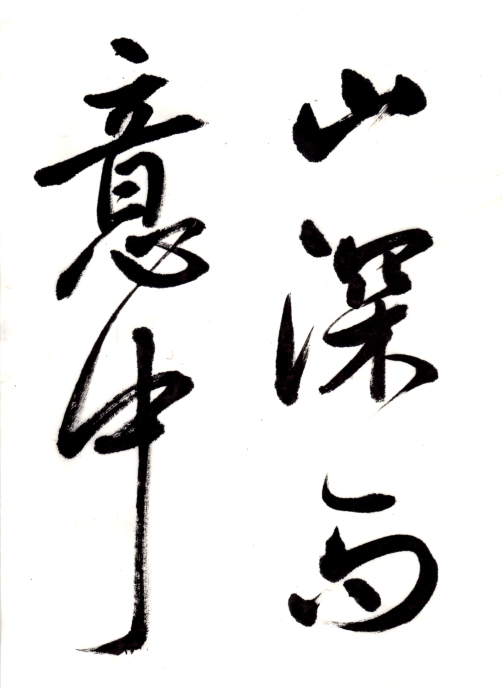 山深雨
意中